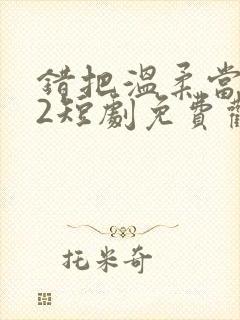 錯把溫柔當
2短劇免費
托米奇